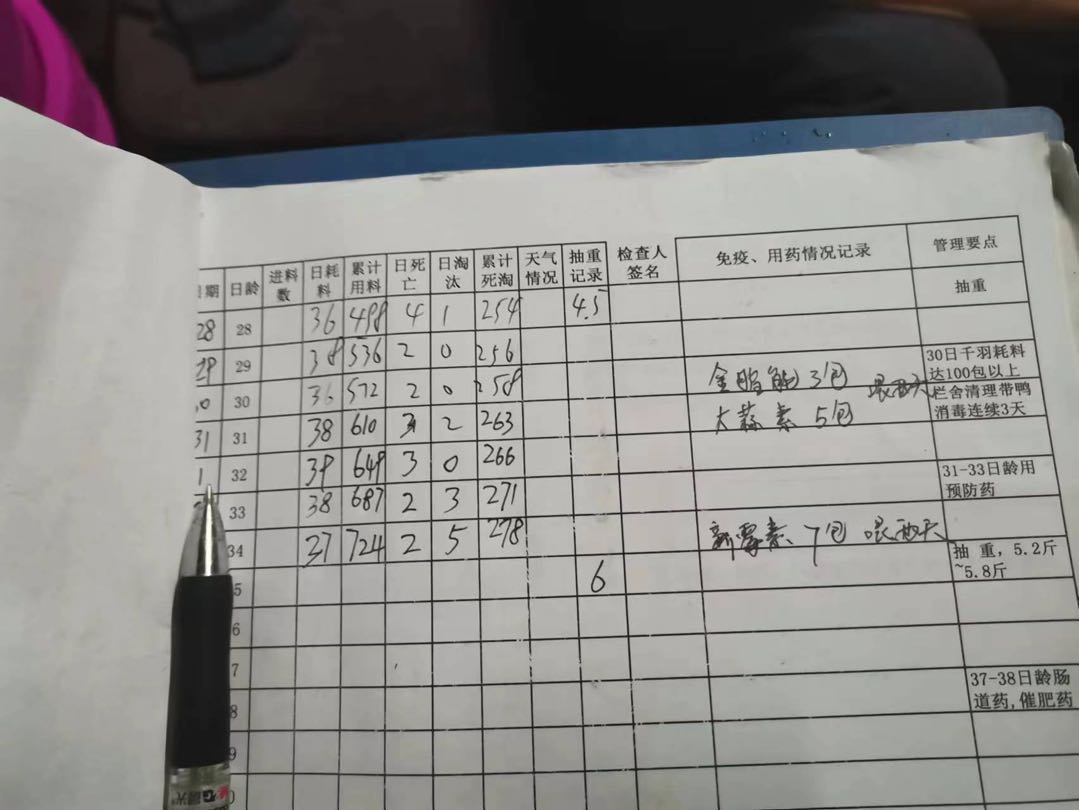 期 日龄 进料数 日耗料 累计用料 日死亡 日淘汰 累计死淘 天气情况 抽重记录 检查人签名 免疫、用药情况记录 管理要点
抽重
28 28 36 498 4 1 254 4.5
29 29 38 536 2 0 256
30日千羽耗料达100包以上
0 30 36 572 2 0 258 3包 喂两天
栏舍清理带鸭消毒连续3天
31 31 38 610 3 2 263 大蒜素 5包
1 32 39 649 3 0 266
31-33日龄用预防药
33 38 687 2 3 271
34 37 724 2 5 278 新霉素 7包 喂两天
抽 重，5.2斤~5.8斤
5 6
6
7
37-38日龄肠道药,催肥药
8
9
0